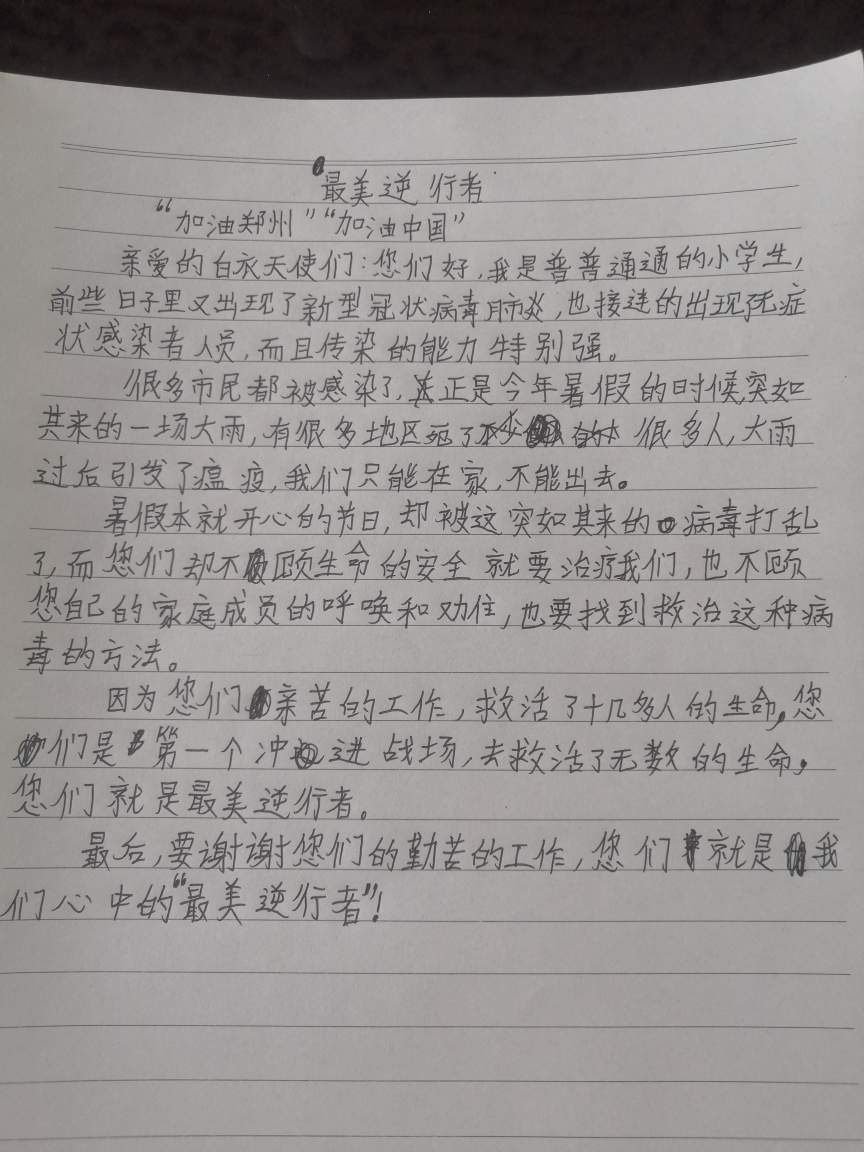 最美逆行者
“加油郑州”“加油中国”
亲爱的白衣天使们:您们好,我是普普通通的小学生,
前些日子里又出现了新型冠状病毒肺炎,也接连的出现无症
状感染者人员,而且传染的能力特别强。
很多市民都被感染了,正是今年暑假的时候,突如
其来的一场大雨,有很多地区死了很多人,大雨
过后引发了瘟疫,我们只能在家,不能出去。
暑假本就开心的节日,却被这突如其来的病毒打乱
了,而您们却不顾生命的安全就要治疗我们,也不顾
您自己的家庭成员的呼唤和劝住,也要找到救治这种病
毒的方法。
因为您们亲苦的工作,救活了十几多人的生命,您
们是第一个冲进战场,去救活了无数的生命,
您们就是最美逆行者。
最后,要谢谢您们的勤苦的工作,您们就是我
们心中的“最美逆行者”!